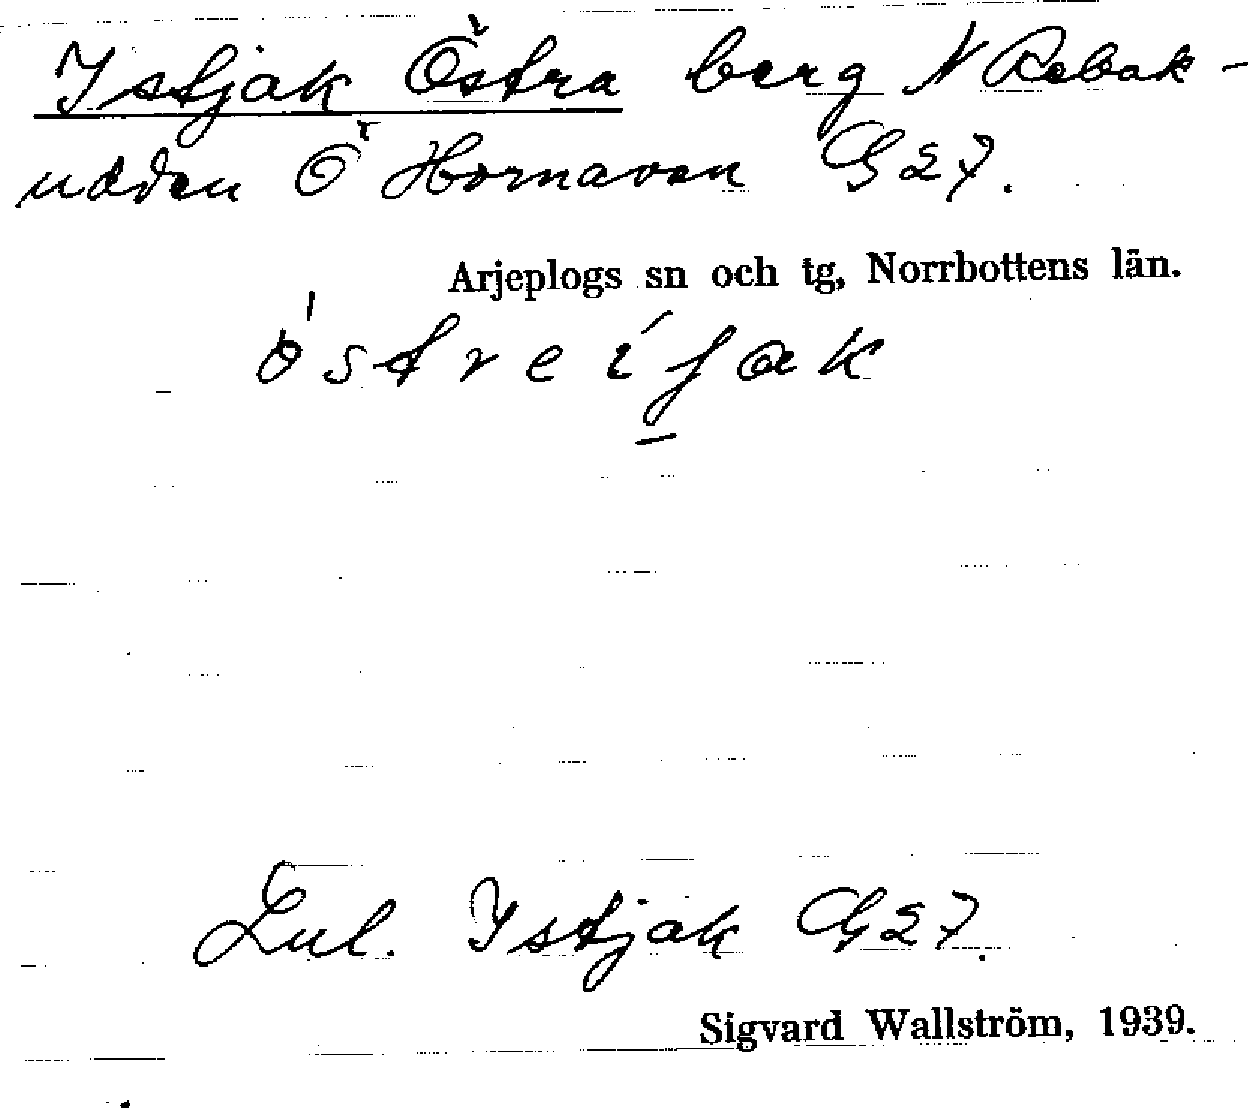 Istjak Östra berg N Rebak-
udden Ö Hornavan G27.
Arjeplogs sn och tg, Norrbottens län.
Lul. Istjak G27.
Sigvard Wallström, 1939.